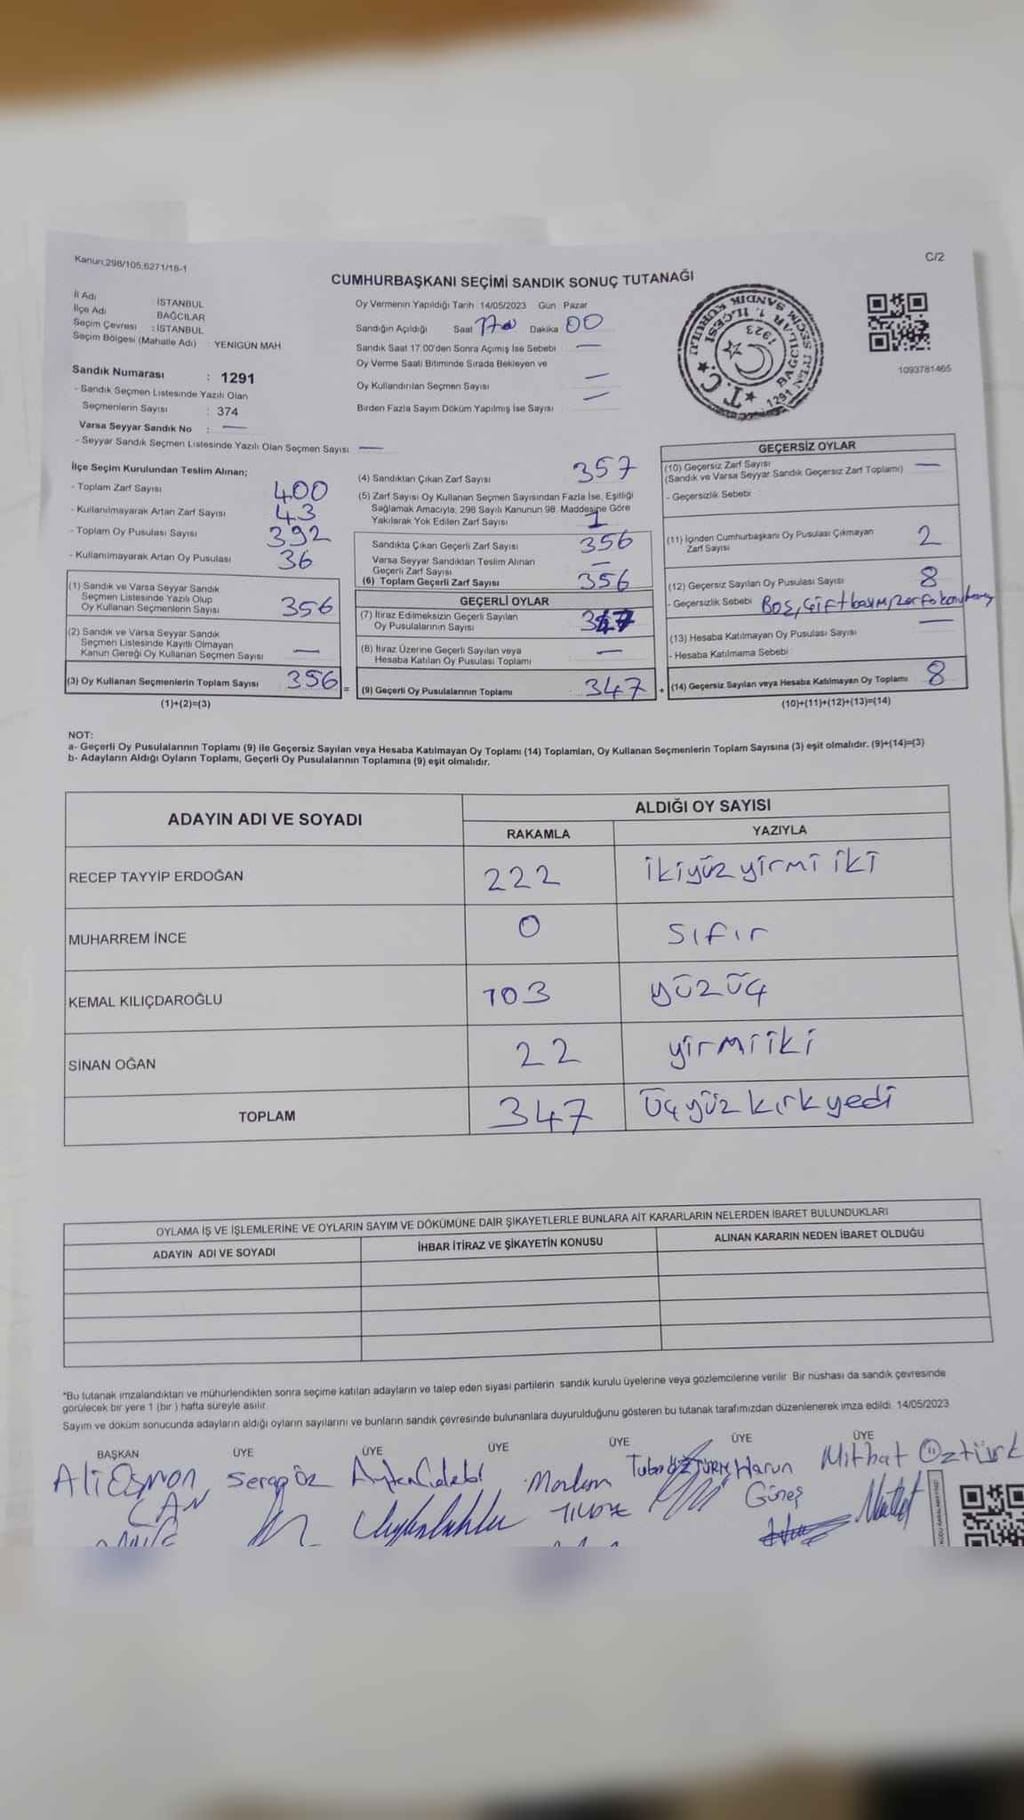 Kanun;298/105,6271/18-1
C/2
CUMHURBAŞKANI SEÇİMİ SANDIK SONUÇ TUTANAĞI
İl Adı İSTANBUL
İlçe Adı BAĞCILAR
Seçim Çevresi : İSTANBUL
Seçim Bölgesi (Mahalle Adı) : YENİGÜN MAH
Sandık Numarası : 1291
- Sandık Seçmen Listesinde Yazılı Olan
Seçmenlerin Sayısı : 374
Varsa Seyyar Sandık No : —
- Seyyar Sandık Seçmen Listesinde Yazılı Olan Seçmen Sayısı : —
Oy Vermenin Yapıldığı Tarih 14/05/2023 Gün Pazar
Sandığın Açıldığı Saat 17 00 Dakika 00
Sandık Saat 17.00'den Sonra Açımış İse Sebebi —
Oy Verme Saati Bitiminde Sırada Bekleyen ve
Oy Kullandırılan Seçmen Sayısı —
Birden Fazla Sayım Döküm Yapılmış İse Sayısı —
T.C. BAĞCILAR 1. İLÇESİ
1923
1291
1093781465
İlçe Seçim Kurulundan Teslim Alınan;
- Toplam Zarf Sayısı 400
- Kullanılmayarak Artan Zarf Sayısı 43
- Toplam Oy Pusulası Sayısı 392
- Kullanılmayarak Artan Oy Pusulası 36
(1) Sandık ve Varsa Seyyar Sandık
Seçmen Listesinde Yazılı Olup
Oy Kullanan Seçmenlerin Sayısı 356
(2) Sandık ve Varsa Seyyar Sandık
Seçmen Listesinde Kayıtlı Olmayan
Kanun Gereği Oy Kullanan Seçmen Sayısı —
(3) Oy Kullanan Seçmenlerin Toplam Sayısı 356 =
(1)+(2)=(3)
(4) Sandıktan Çıkan Zarf Sayısı 357
(5) Zarf Sayısı Oy Kullanan Seçmen Sayısından Fazla İse, Eşitliği
Sağlamak Amacıyla, 298 Sayılı Kanunun 98. Maddesine Göre
Yakılarak Yok Edilen Zarf Sayısı 1
Sandıkta Çıkan Geçerli Zarf Sayısı 356
Varsa Seyyar Sandıktan Teslim Alınan
Geçerli Zarf Sayısı —
(6) Toplam Geçerli Zarf Sayısı 356
GEÇERLİ OYLAR
(7) İtiraz Edilmeksizin Geçerli Sayılan
Oy Pusulalarının Sayısı 347
(8) İtiraz Üzerine Geçerli Sayılan veya
Hesaba Katılan Oy Pusulası Toplamı —
(9) Geçerli Oy Pusulalarının Toplamı 347 +
GEÇERSİZ OYLAR
(10) Geçersiz Zarf Sayısı
(Sandık ve Varsa Seyyar Sandık Geçersiz Zarf Toplamı) —
- Geçersizlik Sebebi
(11) İçinden Cumhurbaşkanı Oy Pusulası Çıkmayan
Zarf Sayısı 2
(12) Geçersiz Sayılan Oy Pusulası Sayısı 8
- Geçersizlik Sebebi Boş, Çift basım,
(13) Hesaba Katılmayan Oy Pusulası Sayısı —
- Hesaba Katılmama Sebebi
(14) Geçersiz Sayılan veya Hesaba Katılmayan Oy Toplamı 8
(10)+(11)+(12)+(13)=(14)
NOT:
a- Geçerli Oy Pusulalarının Toplamı (9) ile Geçersiz Sayılan veya Hesaba Katılmayan Oy Toplamı (14) Toplamları, Oy Kullanan Seçmenlerin Toplam Sayısına (3) eşit olmalıdır. (9)+(14)=(3)
b- Adayların Aldığı Oyların Toplamı, Geçerli Oy Pusulalarının Toplamına (9) eşit olmalıdır.
ADAYIN ADI VE SOYADI
ALDIĞI OY SAYISI
RAKAMLA YAZIYLA
RECEP TAYYİP ERDOĞAN 222 ikiyüz yirmi iki
MUHARREM İNCE 0 sıfır
KEMAL KILIÇDAROĞLU 103 yüzüç
SİNAN OĞAN 22 yirmi iki
TOPLAM 347 Üçyüz kırk yedi
OYLAMA İŞ VE İŞLEMLERİNE VE OYLARIN SAYIM VE DÖKÜMÜNE DAİR ŞİKAYETLERLE BUNLARA AİT KARARLARIN NELERDEN İBARET BULUNDUKLARI
ADAYIN ADI VE SOYADI İHBAR İTİRAZ VE ŞİKAYETİN KONUSU ALINAN KARARIN NEDEN İBARET OLDUĞU
*Bu tutanak imzalandıktan ve mühürlendikten sonra seçime katılan adayların ve talep eden siyasi partilerin sandık kurulu üyelerine veya gözlemcilerine verilir. Bir nüshası da sandık çevresinde
görülecek bir yere 1 (bir ) hafta süreyle asılır.
Sayım ve döküm sonucunda adayların aldığı oyların sayılarını ve bunların sandık çevresinde bulunanlara duyurulduğunu gösteren bu tutanak tarafımızdan düzenlenerek imza edildi. 14/05/2023
BAŞKAN ÜYE ÜYE ÜYE ÜYE ÜYE ÜYE
Ali Osman CAN
Serap Öz
Harun Güneş
Mithat Öztürk